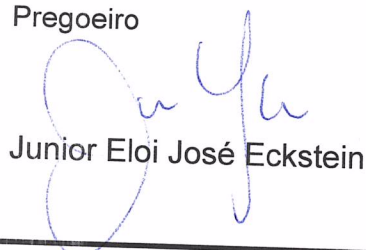 Pregoeiro
Junior Eloi José Eckstein